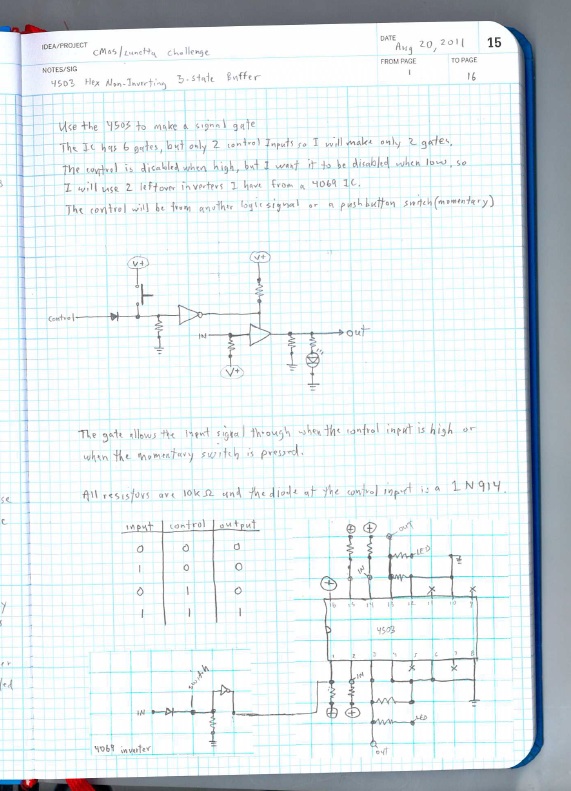 IDEA/PROJECT CMOS/Lunetta Challenge
DATE Aug 20, 2011
15
NOTES/SIG
4503 Hex Non-Inverting 3-State Buffer
FROM PAGE
1
TO PAGE
16
Use the 4503 to make a signal gate
The IC has 6 gates, but only 2 control Inputs so I will make only 2 gates.
The control is disabled when high, but I want it to be disabled when low, so
I will use 2 leftover inverters I have from a 4069 IC.
The control will be from another logic signal or a pushbutton switch (momentary)
V+
V+
Control
IN
out
V+
The gate allows the input signal through when the control input is high or
when the momentary switch is pressed.
All resistors are 10kΩ and the diode at the control input is a 1N914.
input control output
0 0 0
1 0 0
0 1 0
1 1 1
+ + OUT
LED
IN
+
16 15 14 13 12 11 10 9
4503
1 2 3 4 5 6 7 8
IN
+ +
LED
OUT
switch
IN
4069 inverter